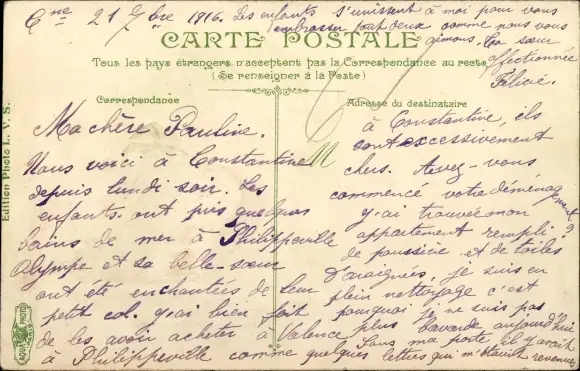 Cne 21 7bre 1916. Les enfants s'unissent à moi pour vous
embrasser tout deux comme nous vous
aimons. Ta sœur
affectionnée
Félicie.
CARTE POSTALE
Tous les pays étrangers n'acceptent pas la Correspondance au recto
(Se renseigner à la Poste)
Correspondance
Ma chère Pauline.
Nous voici à Constantine
depuis lundi soir. Les
enfants ont pris quelques
bains de mer à Philippeville
Olympe et sa belle-sœur
ont été enchantées de leur
petit col. y'ai bien fait
de les avoir acheter à Valence
à Philippeville comme
Adresse du destinataire
à Constantine, ils
sont excessivement
chers. Avez-vous
commencé votre déménagement?
y'ai trouvée mon
appartement rempli
de poussière et de toiles
D'araignées, je suis en
plein nettoyage c'est
pourquoi je ne suis pas
plus bavarde aujourd'hui
Sans ma poste il y avait
quelques lettres qui m'étaient revenues
Edition Photo L. V. S.
AQUA PHOTO